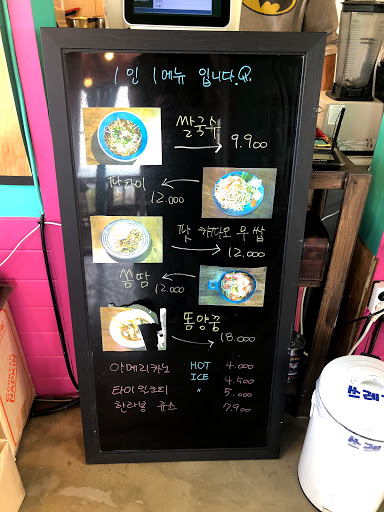 1인 1메뉴 입니다.
쌀국수
9.900
팟타이
12.000
팟 카파오 무 쌉
12.000
쏨땀
12.000
똠양꿍
18.000
아메리카노 HOT 4.000
ICE 4.500
타이밀크티 " 5.000
한라봉 쥬스 7.900
쓰레
쓰레